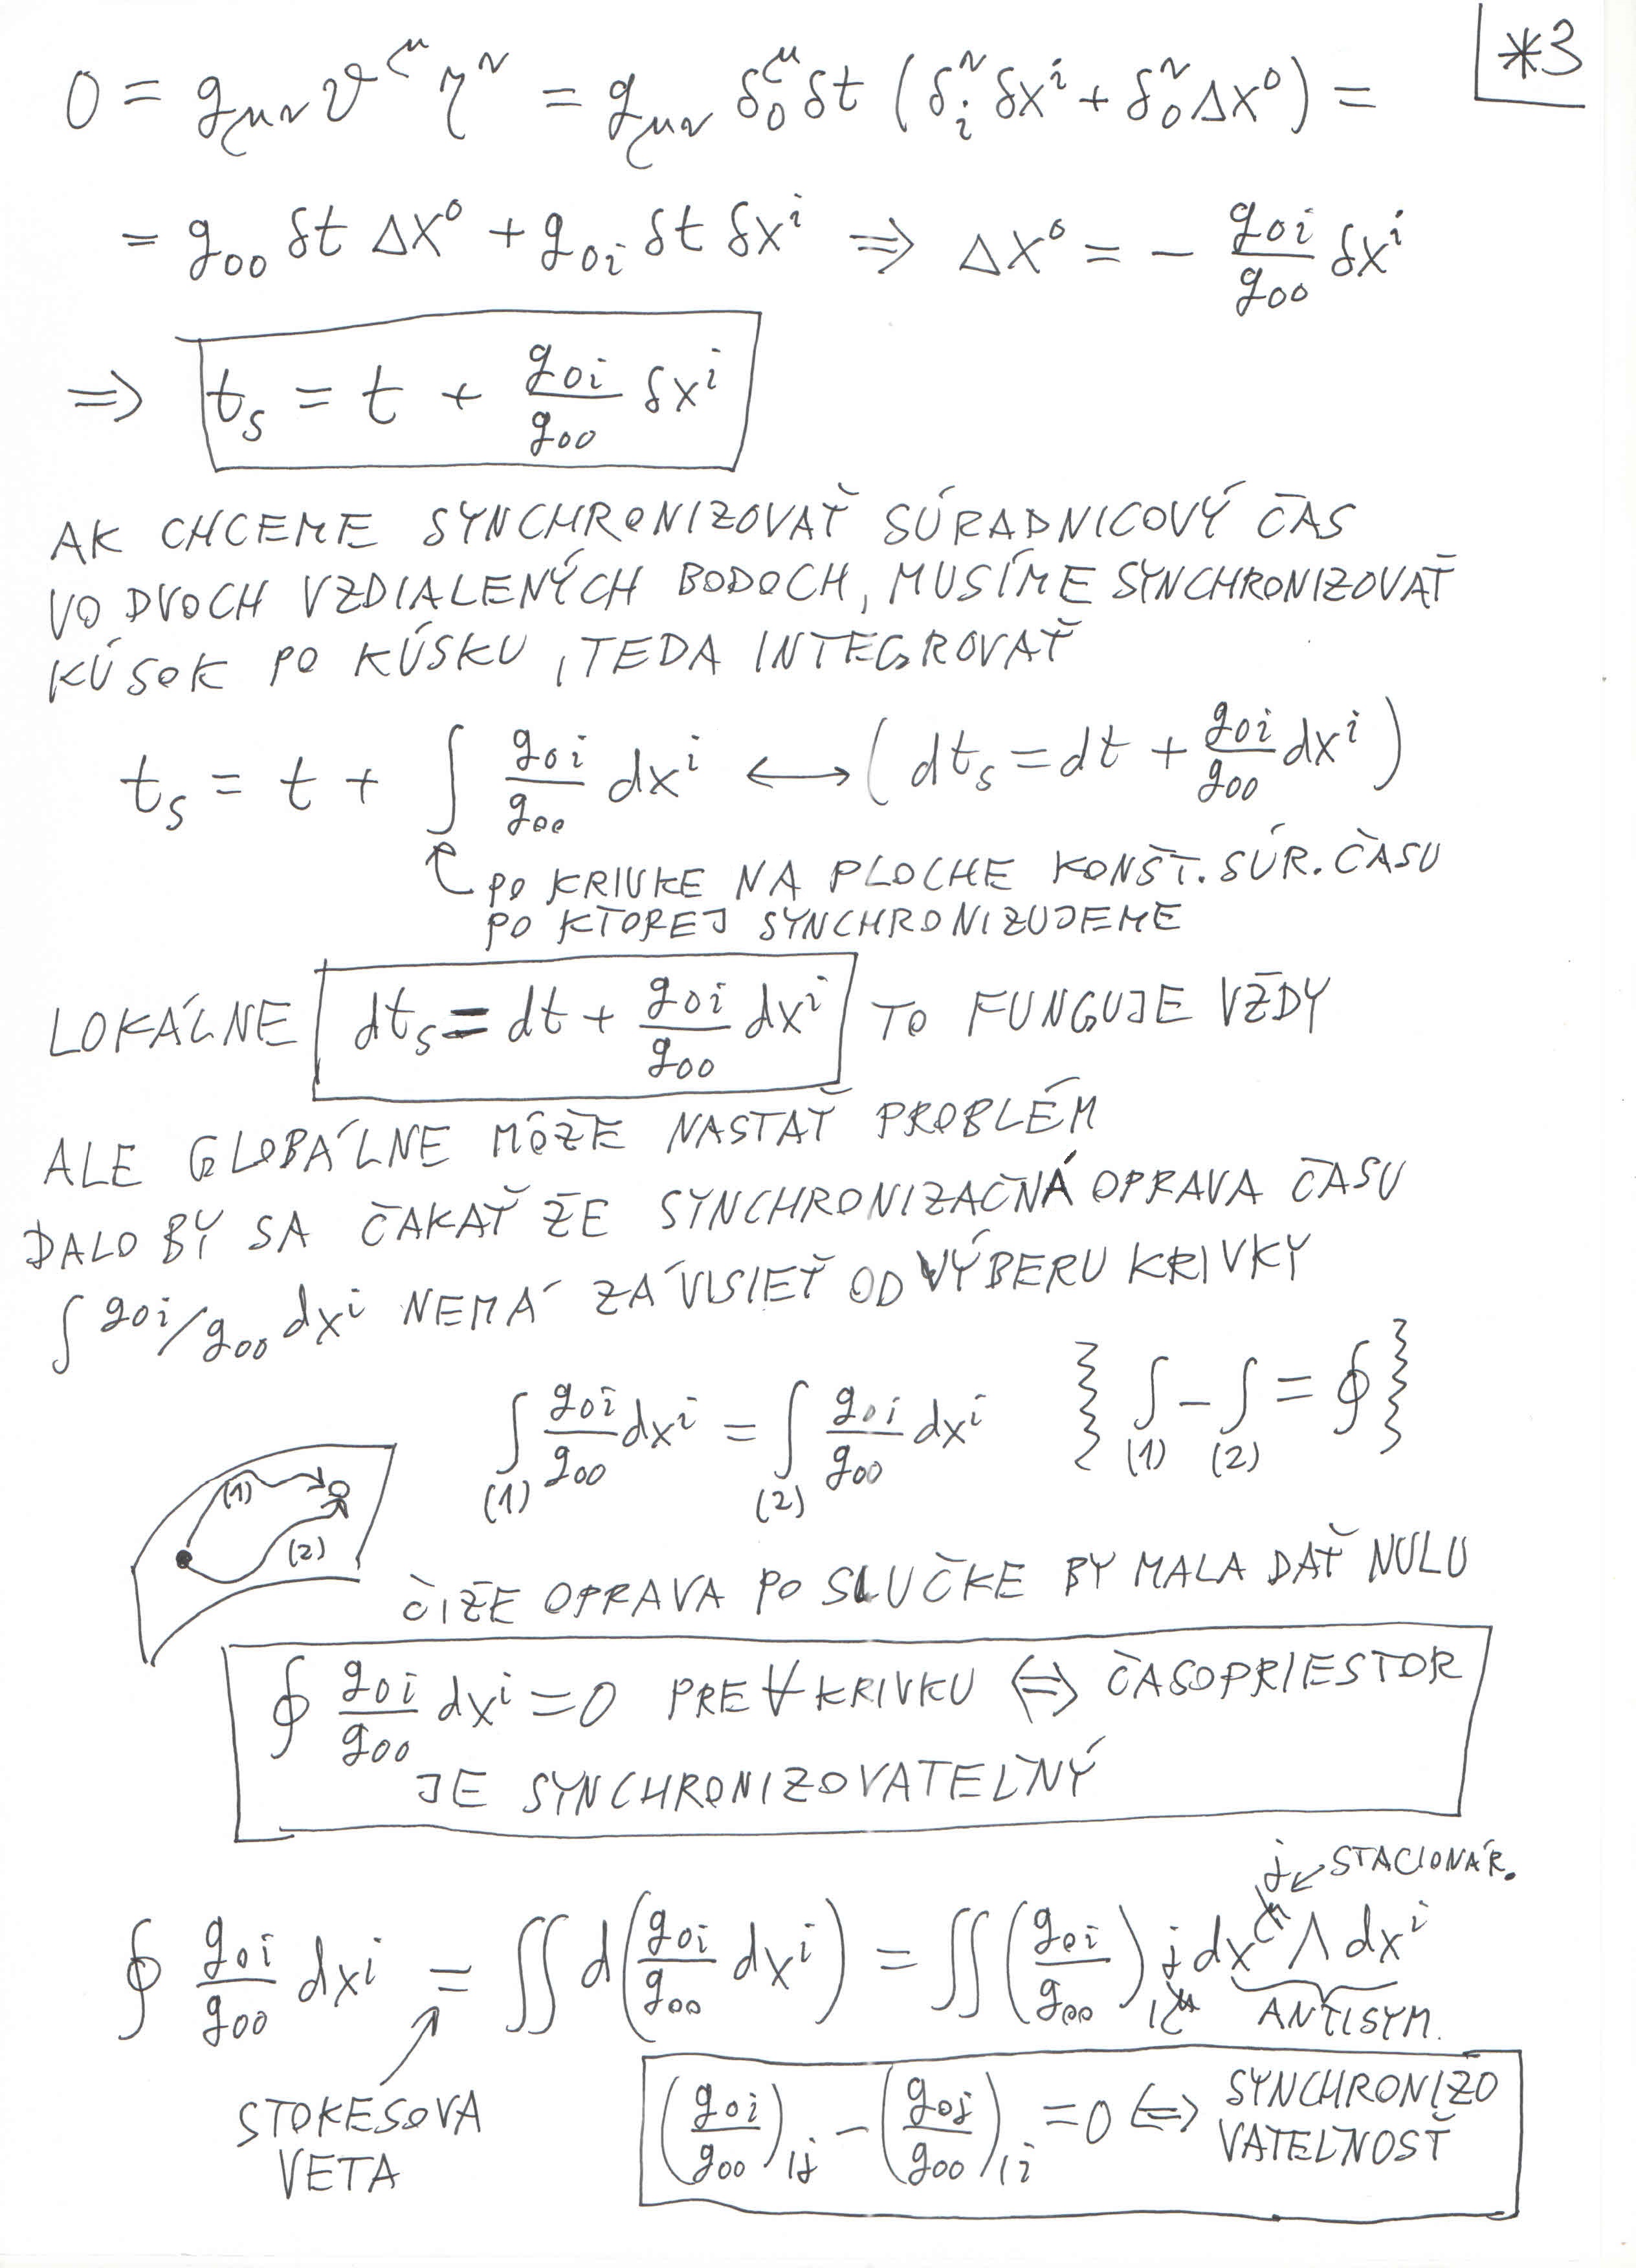 *3
0 = g_{μν} ϑ^μ η^ν = g_{μν} δ^μ_0 δt (δ^ν_i δx^i + δ^ν_0 Δx^0) =
= g_{00} δt Δx^0 + g_{0i} δt δx^i ⇒ Δx^0 = - \frac{g_{0i}}{g_{00}} δx^i
⇒ t_s = t + \frac{g_{0i}}{g_{00}} δx^i
AK CHCEME SYNCHRONIZOVAŤ SÚRADNICOVÝ ČAS
VO DVOCH VZDIALENÝCH BODOCH, MUSÍME SYNCHRONIZOVAŤ
KÚSOK PO KÚSKU, TEDA INTEGROVAŤ
t_s = t + ∫ \frac{g_{0i}}{g_{00}} dx^i ⟷ (dt_s = dt + \frac{g_{0i}}{g_{00}} dx^i)
PO KRIVKE NA PLOCHE KONŠT. SÚR. ČASU
PO KTOREJ SYNCHRONIZUJEME
LOKÁLNE dt_s = dt + \frac{g_{0i}}{g_{00}} dx^i TO FUNGUJE VŽDY
ALE GLOBÁLNE MÔŽE NASTAŤ PROBLÉM
DALO BY SA ČAKAŤ ŽE SYNCHRONIZAČNÁ OPRAVA ČASU
∫ g_{0i}/g_{00} dx^i NEMÁ ZÁVISIEŤ OD VÝBERU KRIVKY
∫_{(1)} \frac{g_{0i}}{g_{00}} dx^i = ∫_{(2)} \frac{g_{0i}}{g_{00}} dx^i { ∫_{(1)} - ∫_{(2)} = ∮ }
(1)
(2)
ČIŽE OPRAVA PO SLUČKE BY MALA DAŤ NULU
∮ \frac{g_{0i}}{g_{00}} dx^i = 0 PRE ∀ KRIVKU ⇔ ČASOPRIESTOR
JE SYNCHRONIZOVATEĽNÝ
j ← STACIONÁR.
∮ \frac{g_{0i}}{g_{00}} dx^i = ∬ d(\frac{g_{0i}}{g_{00}} dx^i) = ∬ (\frac{g_{0i}}{g_{00}})_{,μ j} dx^μ ∧ dx^i
ANTISYM.
STOKESOVA
VETA
(\frac{g_{0i}}{g_{00}})_{,j} - (\frac{g_{0j}}{g_{00}})_{,i} = 0 ⇔ SYNCHRONIZO
VATEĽNOSŤ